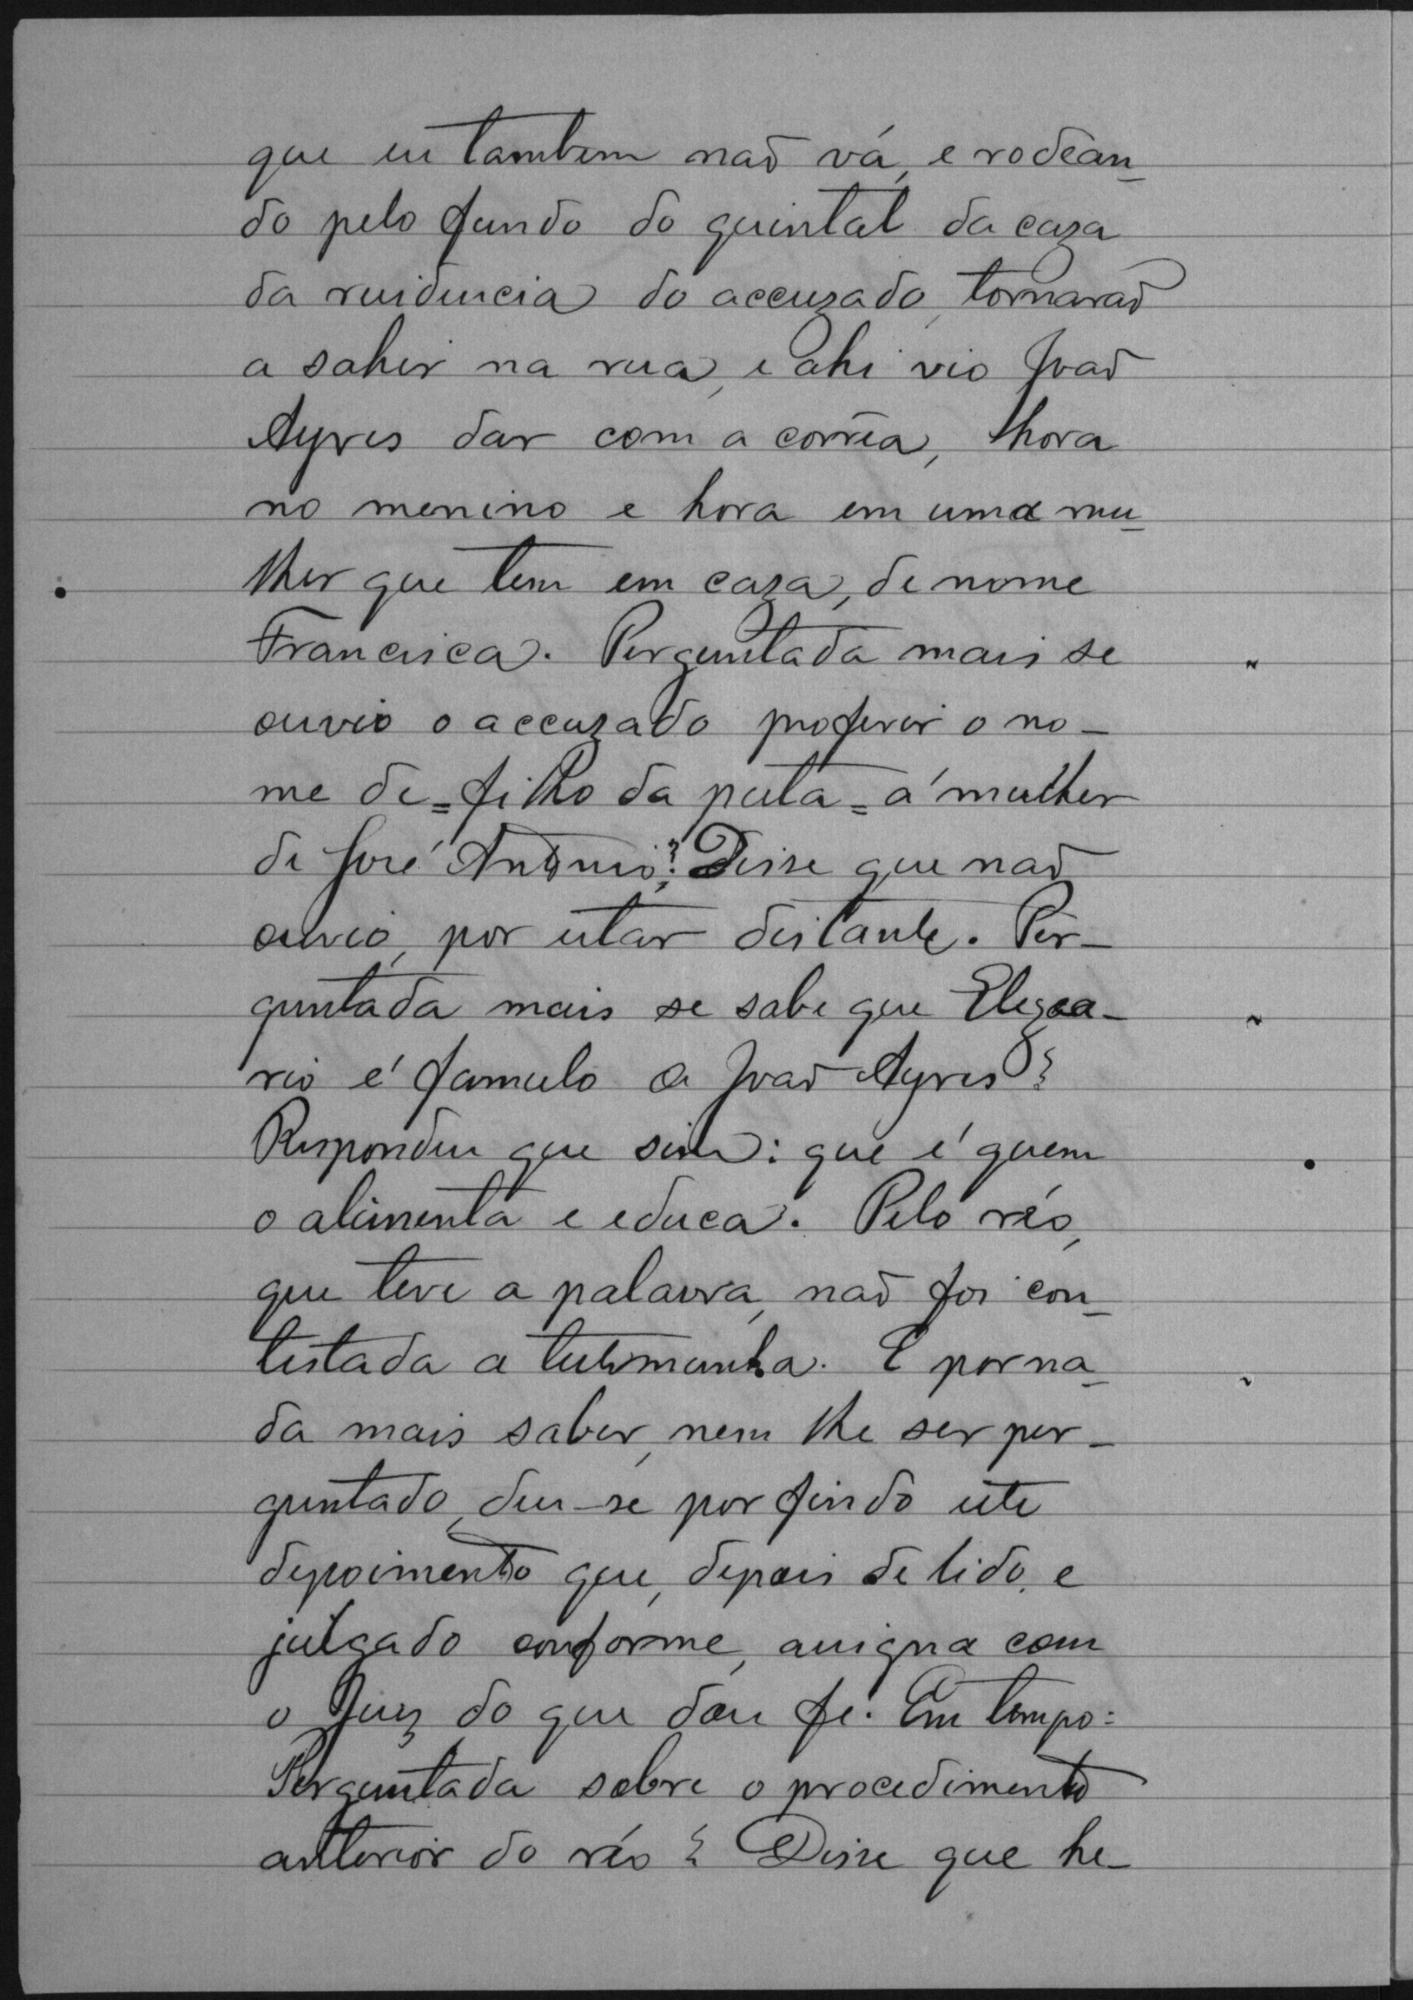 que eu tambem naõ vá, e rodean-
do pelo fundo do quintal da caza
da residencia do accuzado, tornaraõ
a sahir na rua, e ahi vio Joaõ
Ayres dar com a corrêa, hora
no menino e hora em uma mu-
lher que tem em caza, de nome
Francisca. Perguntada mais se
ouvio o accuzado proferir o no-
me de = filho da puta = á mulher
de José Antonio? Disse que naõ
ouvio, por estar distante. Per-
guntada mais se sabe que Elezea-
rio é famulo a Joaõ Ayres?
Respondeu que sim: que é quem
o alimenta e educa. Pelo réo,
que teve a palavra, naõ foi con-
testada a testemunha. E por na-
da mais saber, nem lhe ser per-
guntado, deu-se por findo este
depoimento que, depois de lido, e
julgado conforme, assigna com
o Juiz do que dou fé. Em tempo:
Perguntada sobre o procedimento
anterior do réo? Disse que he-